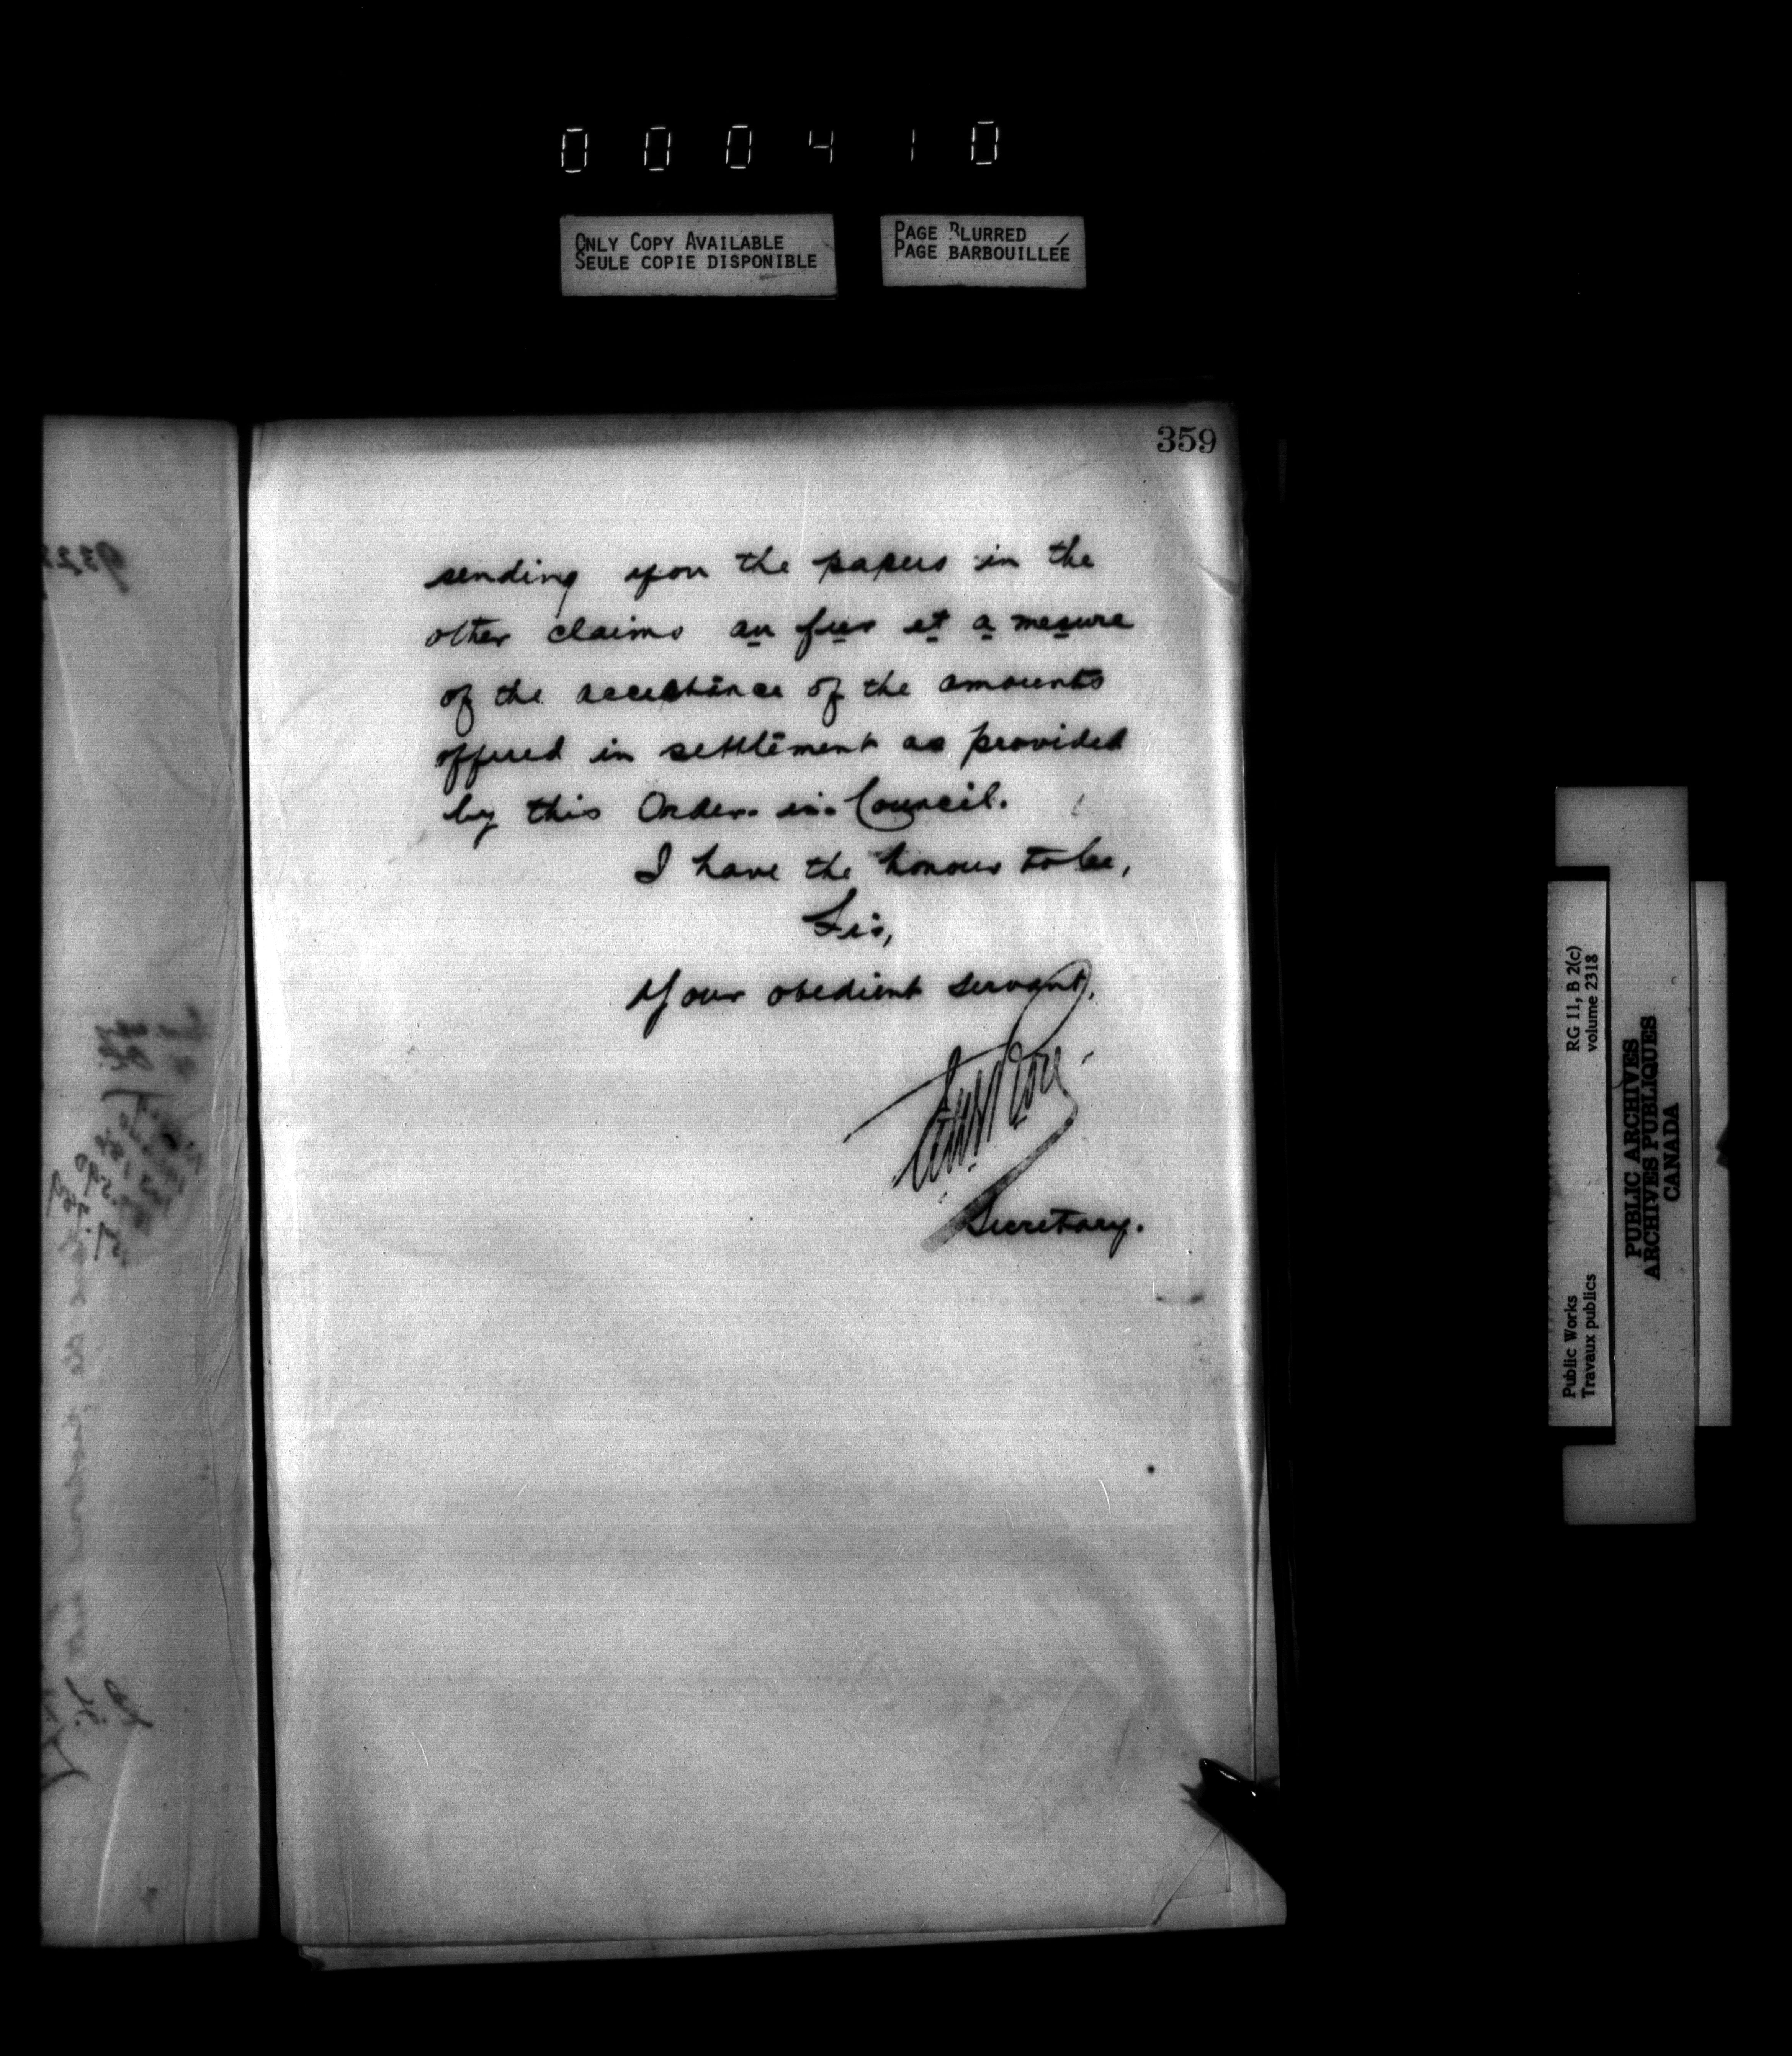 000410
ONLY COPY AVAILABLE
SEULE COPIE DISPONIBLE
PAGE BLURRED
PAGE BARBOUILLÉE
359
sending you the papers in the
other claims au fur et a mesure
of the acceptance of the amounts
offered in settlement as provided
by this Order-in-Council.
I have the honour to be,
Sir,
Your obedient servant,
Secretary.
RG 11, B 2(c)
volume 2318
Public Works
Travaux publics
PUBLIC ARCHIVES
ARCHIVES PUBLIQUES
CANADA